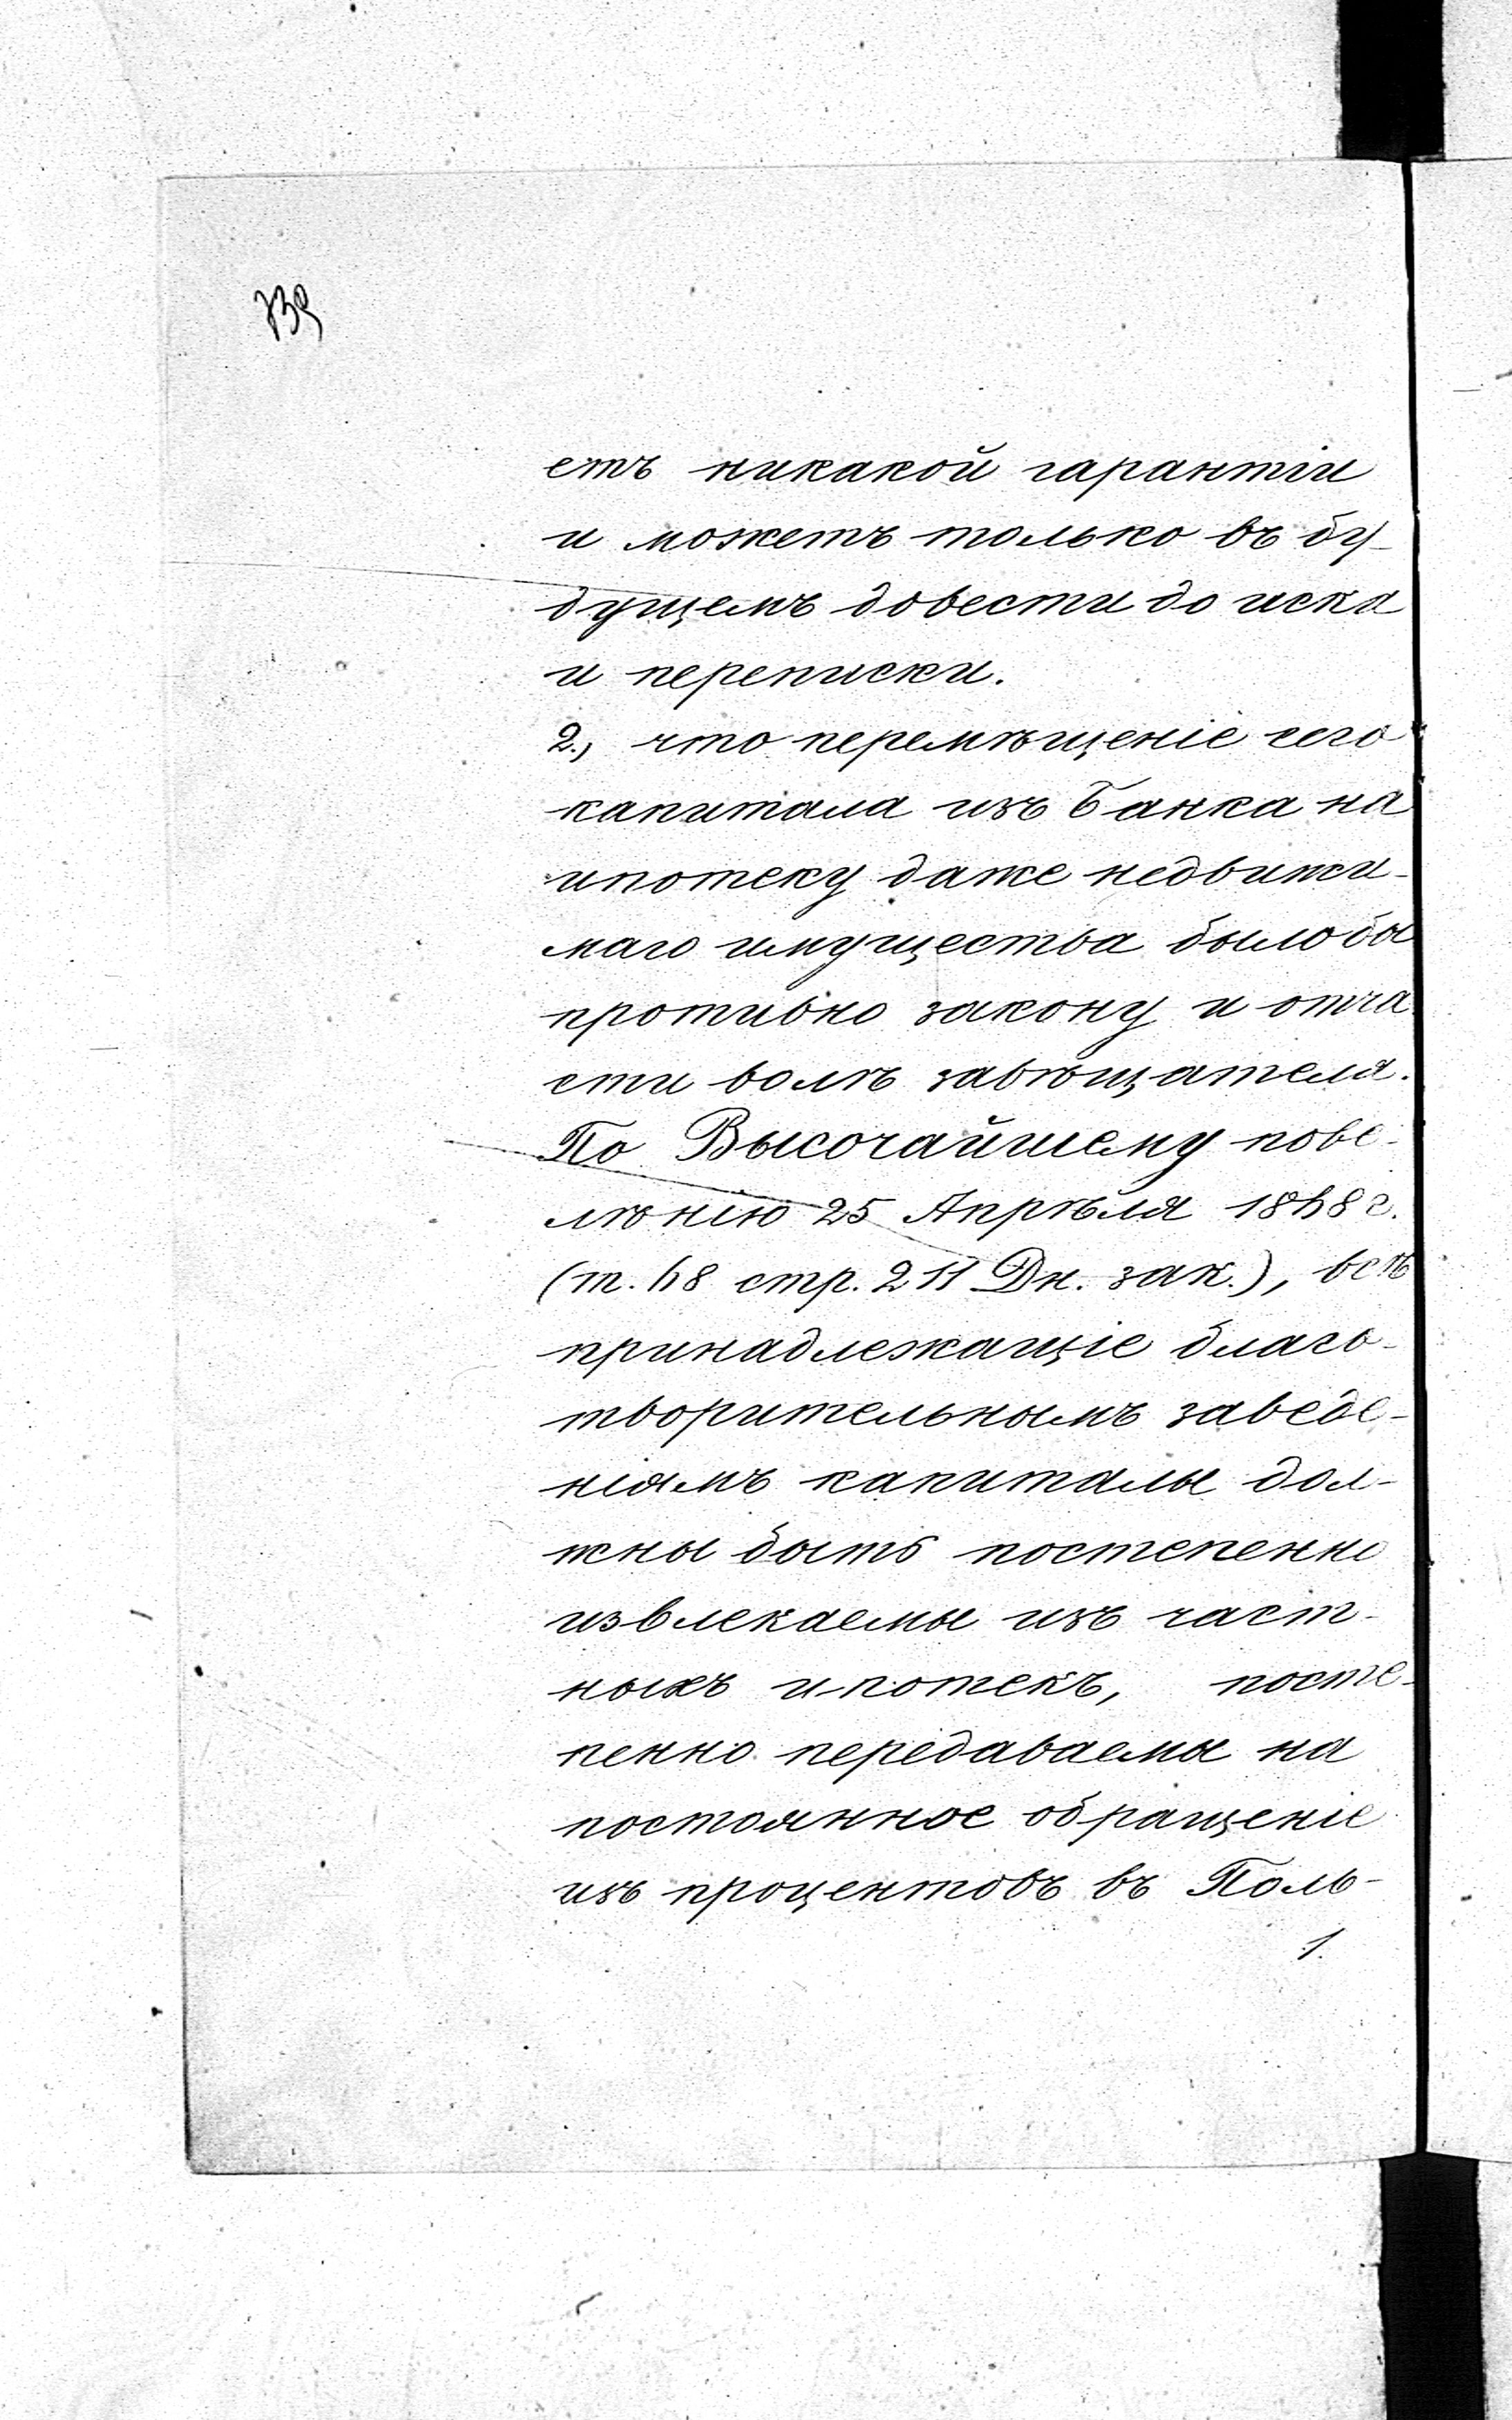 739
етъ никакой гарантіи
и можетъ только въ бу-
дущемъ довести до иска
и переписки.
2., что перемѣщеніе сего
капитала изъ Банка на
ипотеку даже недвижи-
маго имущества было бы
противно закону и отча
сти волѣ завѣщателя.
По Высочайшему пове-
лѣнію 25 Апрѣля 1848 г.
(т. 48 стр. 211 Дн. зак.), всѣ
принадлежащіе благо-
творительнымъ заведе-
ніямъ капиталы дол-
жны быть постепенно
извлекаемы изъ част-
ныхъ ипотекъ, посте-
пенно передаваемы на
постоянное обращеніе
изъ процентовъ въ Поль-
1.